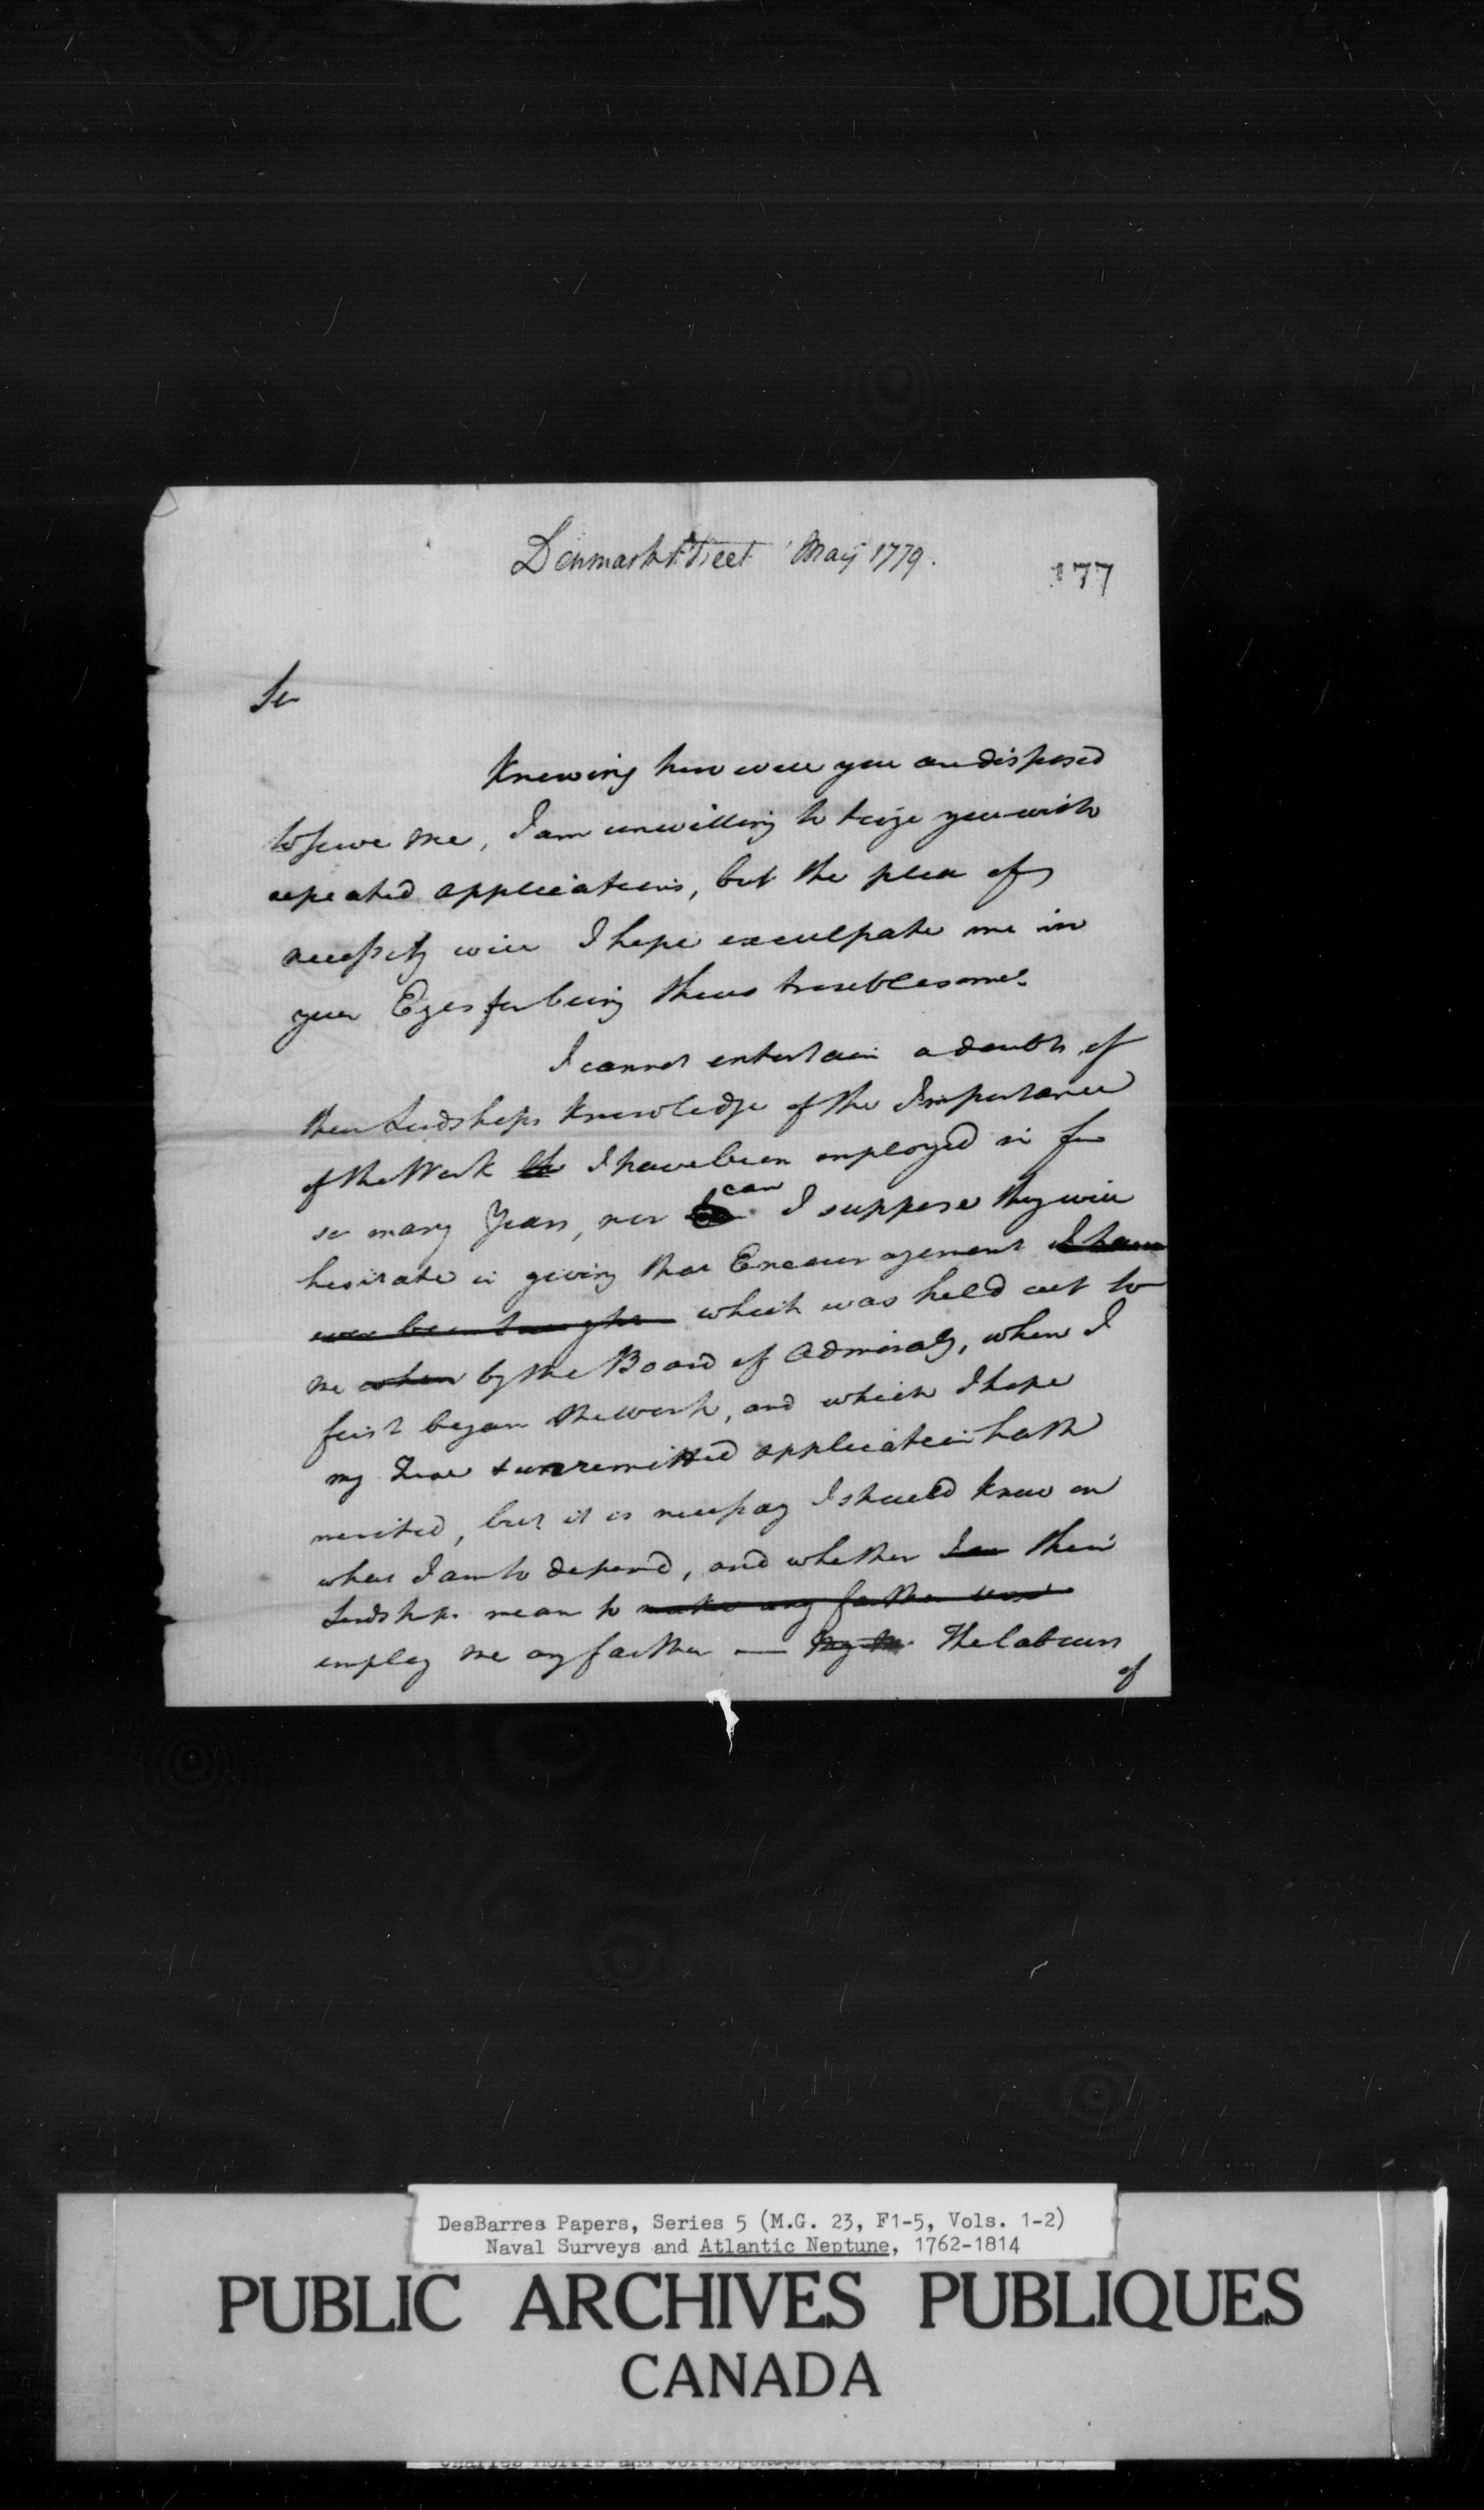 Denmark Street May 1779.
177
Sir
Knowing how well you are disposed
to serve me, I am unwilling to teize you with
repeated applications, but the plea of
necessity will I hope exculpate me in
your Eyes for being thus troublesome.
I cannot entertain a doubt of
their Lordships Knowledge of the Importance
of the Work I have been employed in for
so many Years, nor can I suppose they will
hesitate in giving that Encouragement I have
ever been taught which was held out to
me when by the Board of Admiralty, when I
first began the work, and which I hope
my Zeal & unremitted application hath
merited, but it is necessary I should know on
what I am to depend, and whether I am their
Lordships mean to make any farther use
employ me any farther — My The labours
of
DesBarres Papers, Series 5 (M.G. 23, F1-5, Vols. 1-2)
Naval Surveys and Atlantic Neptune, 1762-1814
PUBLIC ARCHIVES PUBLIQUES
CANADA